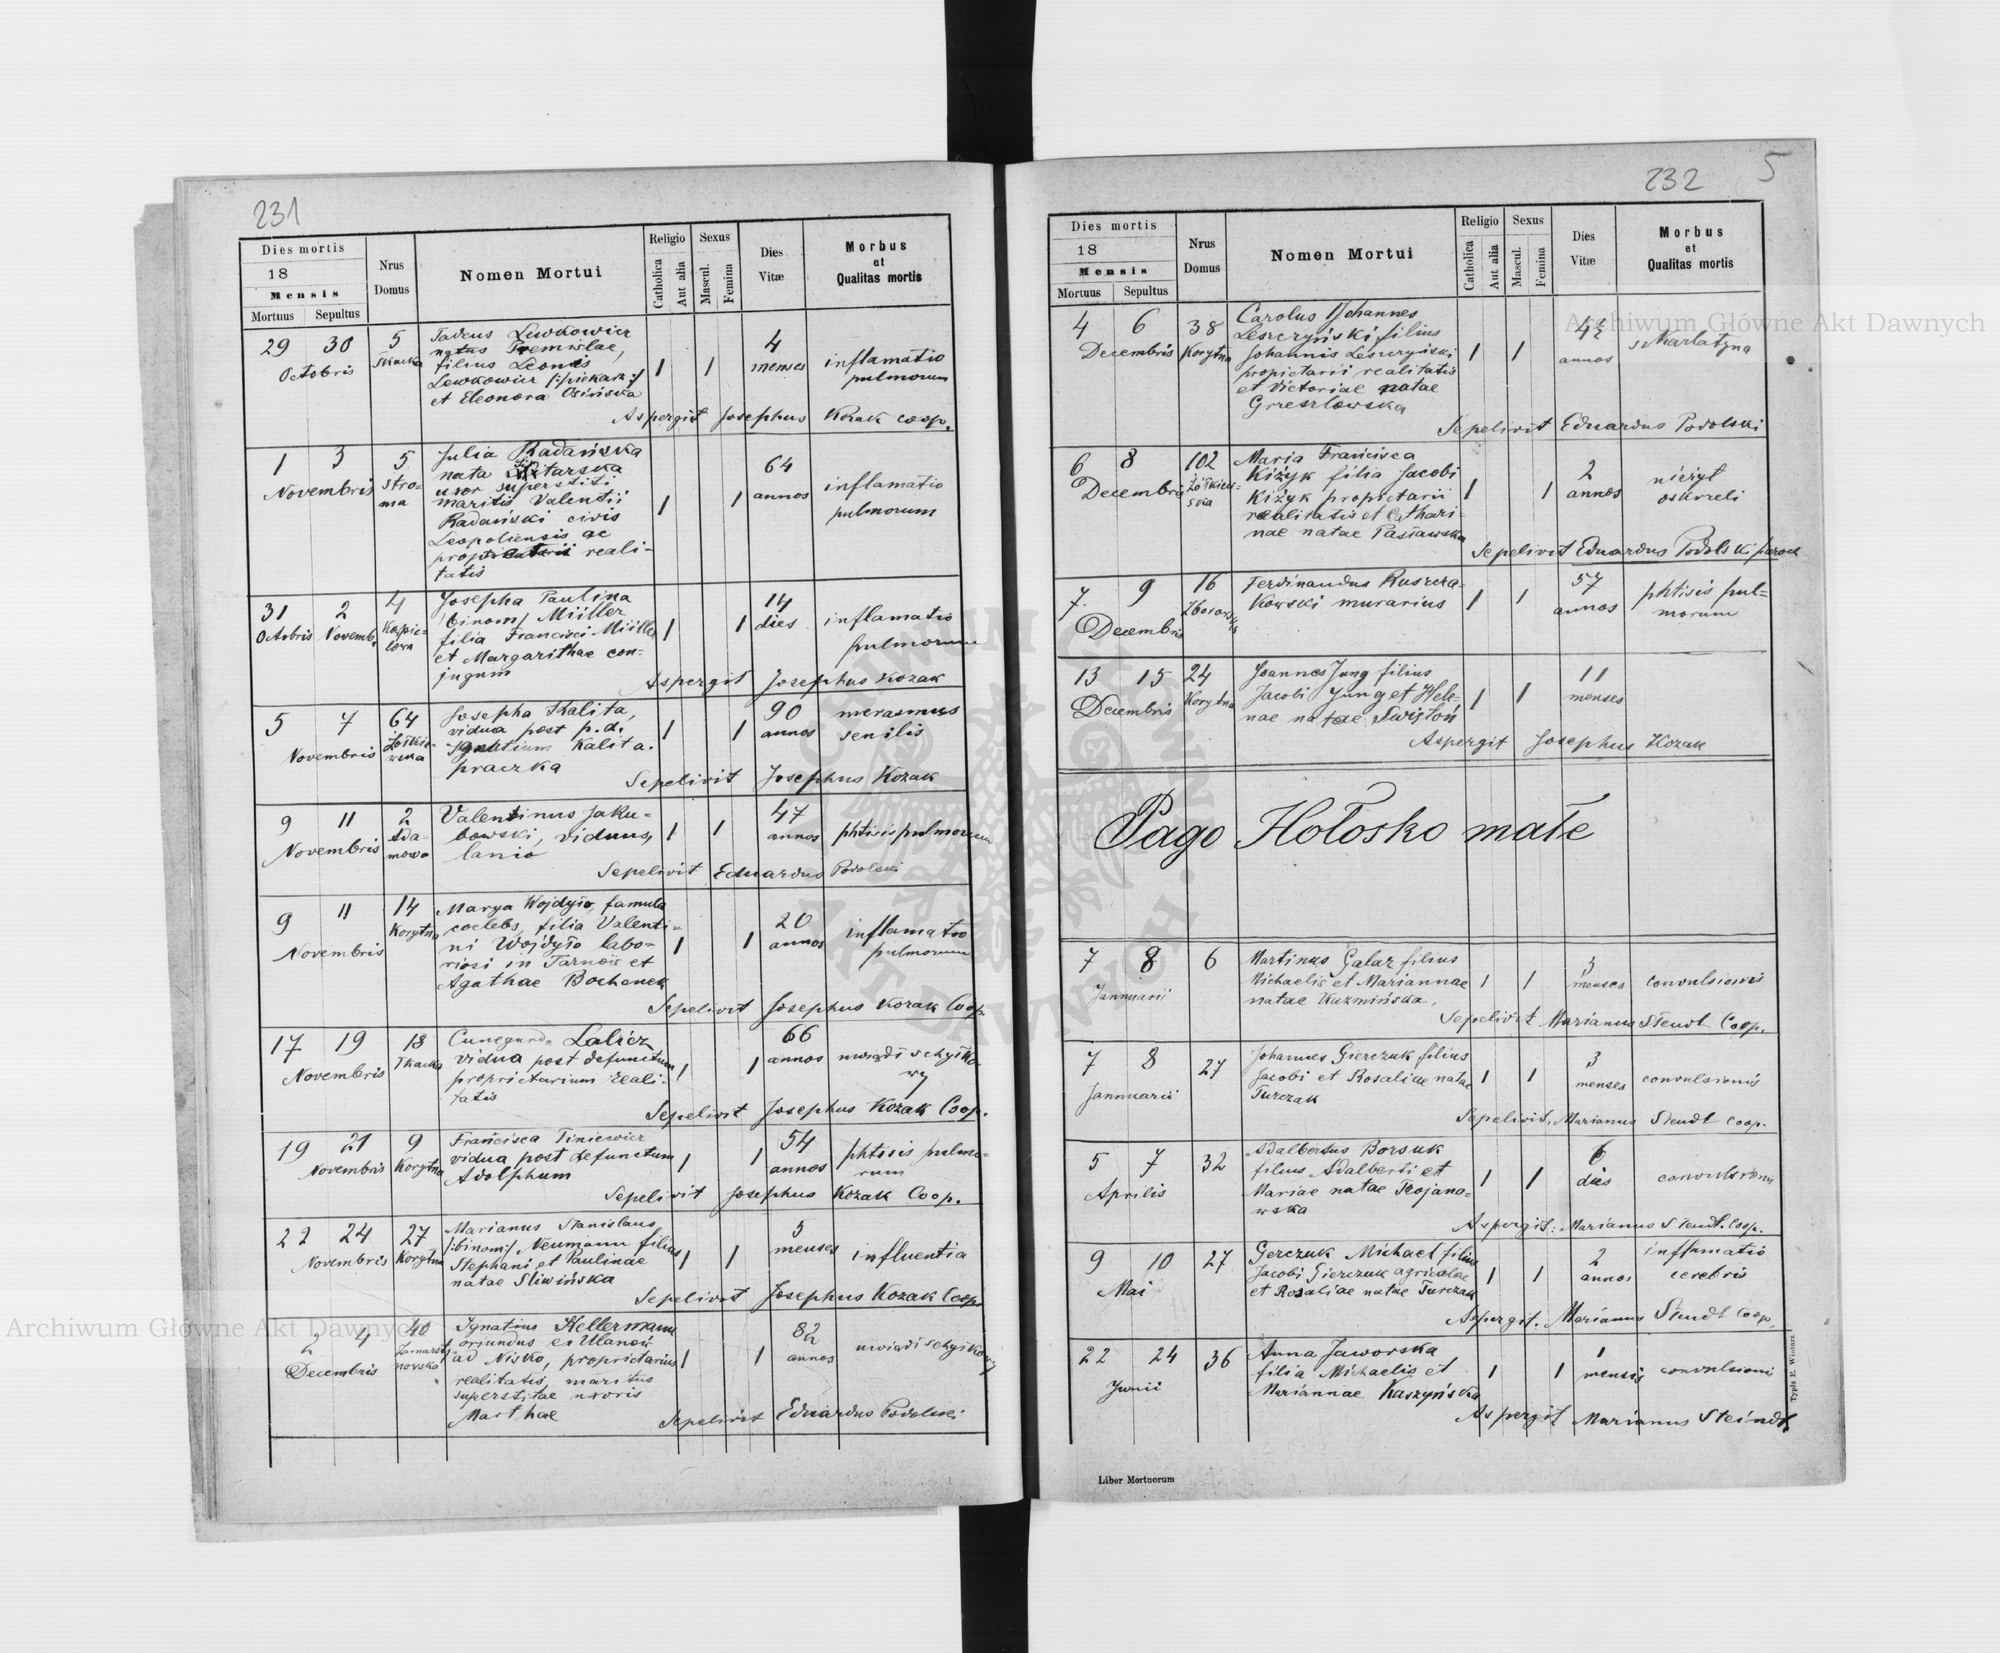 231
Dies mortis
18
Mensis
Mortuus Sepultus
Nrus Domus
Nomen Mortui
Religio
Catholica
Aut alia
Sexus
Mascul.
Femina
Dies Vitæ
Morbus et Qualitas mortis
29 30 5 Tadeus Lewkowicz
Octobris natus Premislae,
filius Leonis 1 1 4 menses inflamatio
Lewkowicz /:piekarz:/ pulmorum
et Eleonora Osińska
Aspergit Josephus Kozak coop.
1 3 5 Julia Radańska
Novembris Stro- nata
ma uxor superstiti 1 1 64 annos inflamatio
mariti Valentii pulmorum
Radański civis
Leopoliensis ac
proprietarii reali-
tatis
31 2 4 Josepha Paulina
Octobris Novemb. binom, Müller 1 1 14 dies inflamatio
filia Francisci Müller pulmorum
et Margarithae con-
jugum
Aspergit Josephus Kozak
5 7 64 Josepha Kalita, 90 merasmus
Novembris vidua post p.d. 1 1 annos senilis
Ignatium Kalita.
praczka
Sepelivit Josephus Kozak
9 11 2 Valentinus Jaku- 47
Novembris Ada- bowski, viduus, 1 1 annos phtisis pulmorum
mowa lanio
Sepelivit Eduardus Podolski
9 11 14 Marya Wojdyło, famula
Novembris Korytna coelebs, filia Valenti- 20
ni Wojdyło labo- 1 1 annos inflamatio
riosi in Tarnow et pulmorum
Agathae Bochenek
Sepelivit Josephus Kozak Coop.
17 19 18 Cunegunda Lalicz 66
Novembris Tkacka vidua post defunctum 1 1 annos uwiąd schyłko-
proprietarium reali- wy
tatis
Sepelivit Josephus Kozak Coop.
19 21 9 Francisca Tiniewicz 54
Novembris Korytna vidua post defunctum 1 1 annos phtisis pulmo-
Adolphum rum
Sepelivit Josephus Kozak Coop.
22 24 27 Marianus Stanislaus
Novembris Korytna /:binom:/ Neumann filius 1 1 menses influentia
Stephani et Paulinae
natae Sliwińska
Sepelivit Josephus Kozak Coop.
2 4 40 Ignatius Kellermann 82
Decembris oriundus ex Ulanów
ad Nisko, proprietarius 1 1 annos uwiąd schyłkowy
realitatis, maritus
superstitae uxoris
Marthae
Sepelivit Eduardus Podolski
232 5
Dies mortis
18
Mensis
Mortuus Sepultus
Nrus Domus
Nomen Mortui
Religio
Catholica
Aut alia
Sexus
Mascul.
Femina
Dies Vitæ
Morbus et Qualitas mortis
4 6 38 Carolus Johannes
Decembris Korytna Leszczyński filius
Johannis Leszczyński 1 1 annos szkarlatyna
propietarii realitatis
et Victoriae natae
Grzeszlowska
Sepelivit Eduardus Podolski
6 8 102 Maria Francisca
Decembris Żółkiew- Kiżyk filia Jacobi 2 nieżyt
ska Kiżyk proprietarii 1 1 annos oskrzeli
realitatis et Cathari-
nae natae Pasławska
Sepelivit Eduardus Podolski paroch
7. 9 16 Ferdinandus Ruszcza- 57 phtisis pul-
Decembris kowski murarius 1 1 annos morum
13 15 24 Joannes Jung filius 11
Decembris Korytna Jacobi Jung et Hele- 1 1 menses
nae natae Świstoń
Aspergit Josephus Kozak
Pago Hołosko małe
7 8 6 Martinus Galaz filius 3
Jannuarii Michaelis et Mariannae 1 1 menses convulsionis
natae Kuzmińska.
Sepelivit Marianus Steudt Coop.
7 8 27 Johannes Gierczuk filius 3
Jannuarii Jacobi et Rosaliae natae 1 1 menses convulsionis
Turczak
Sepelivit. Marianus Steudt coop.
5 7 32 Adalbertus Borsuk 6
Aprilis filius Adalberti et 1 1 dies convulsionis
Mariae natae Trojano-
wska
Aspergit: Marianus Steudt. Coop.
9 10 27 Gerczuk Michael filius 2 inflamatio
Mai Jacobi Gierczuk agricolae 1 1 annos cerebris
et Rosaliae natae Turczak
Aspergit. Marianus Steudt Coop.
22 24 36 Anna Jaworska 1
Junii filia Michaelis et 1 1 mensis convulsioni
Mariannae Kaszyńska
Aspergit Marianus Steindt
Liber Mortuorum
Typis E. Winiarz
Archiwum Główne Akt Dawnych
Archiwum Główne Akt Dawnych